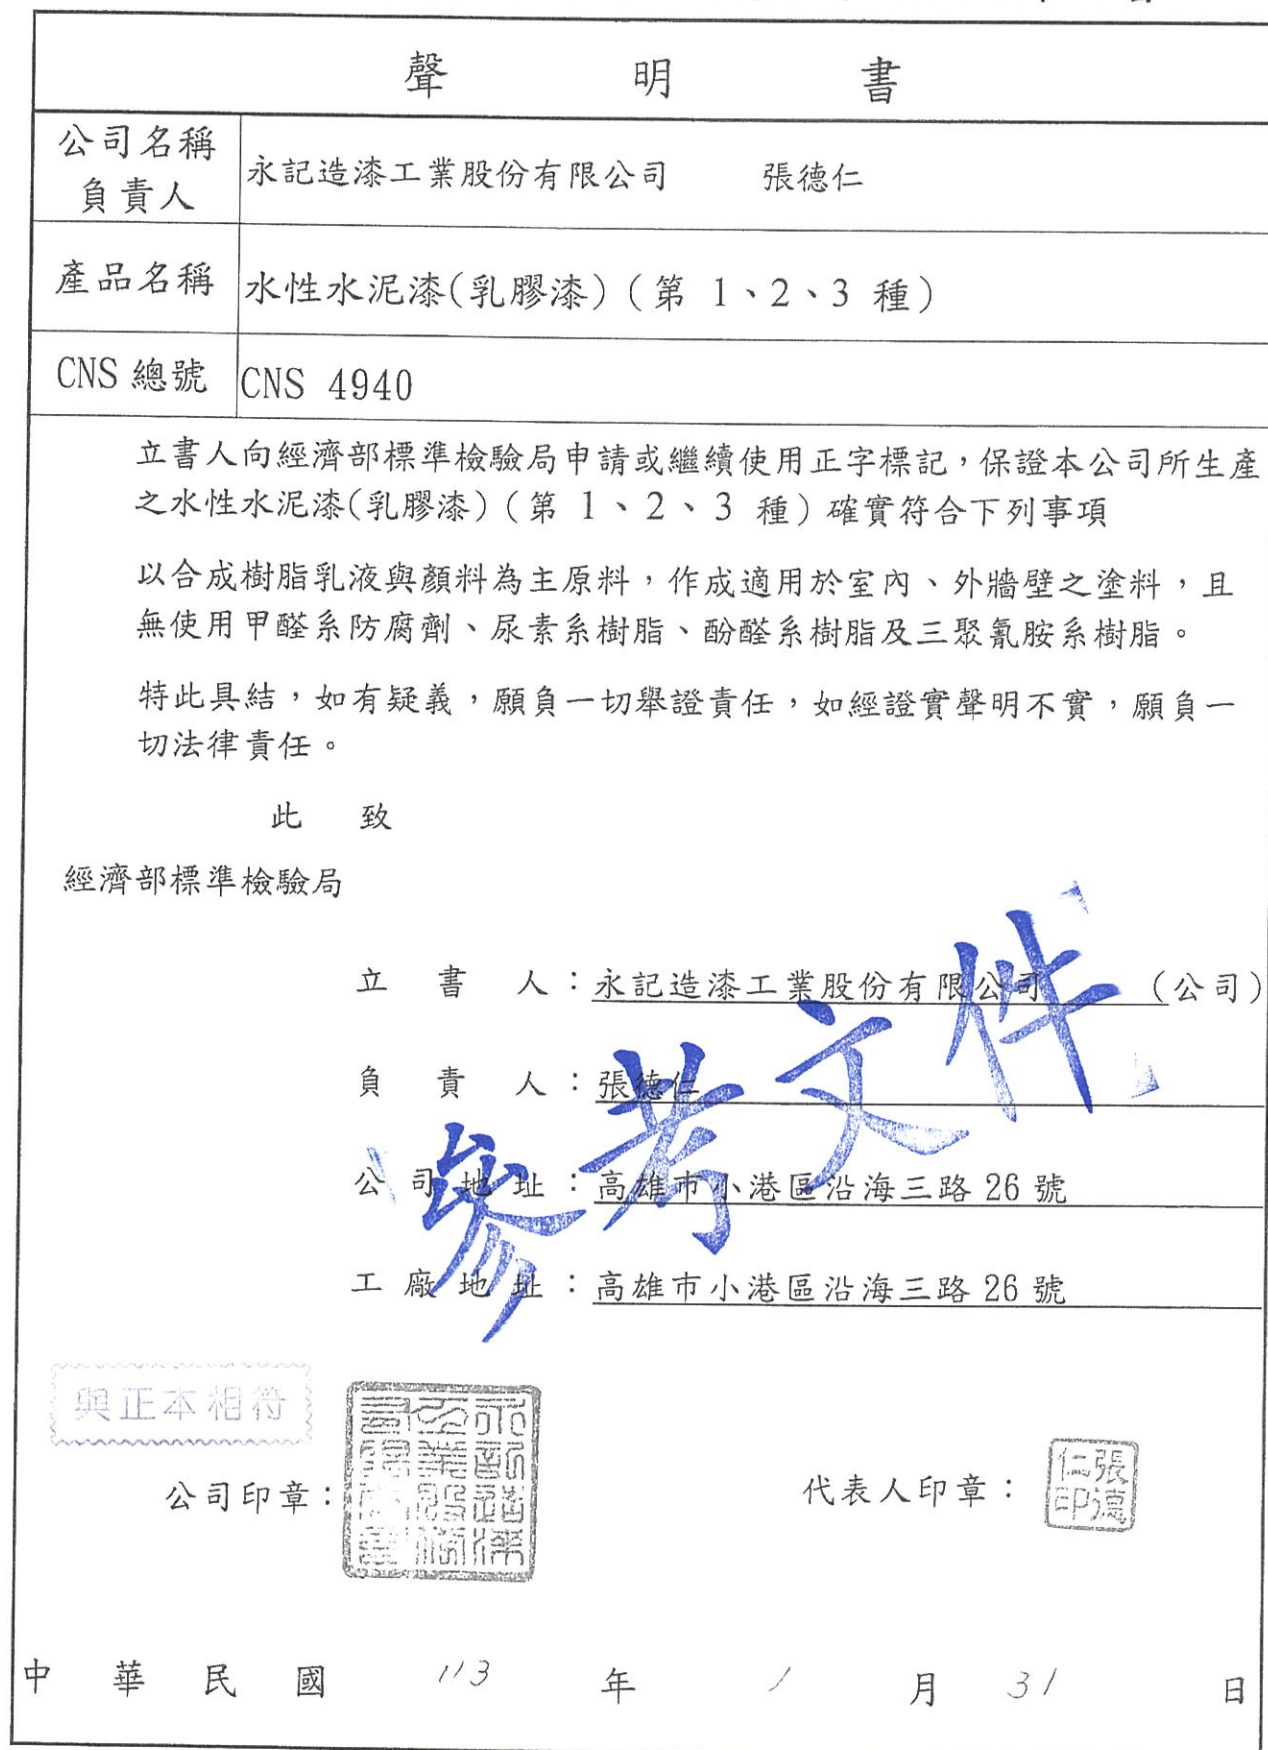 聲 明 書
公司名稱
負責人
永記造漆工業股份有限公司 張德仁
產品名稱
水性水泥漆(乳膠漆)(第 1、2、3 種)
CNS 總號
CNS 4940
立書人向經濟部標準檢驗局申請或繼續使用正字標記,保證本公司所生產
之水性水泥漆(乳膠漆)(第 1、2、3 種)確實符合下列事項
以合成樹脂乳液與顏料為主原料,作成適用於室內、外牆壁之塗料,且
無使用甲醛系防腐劑、尿素系樹脂、酚醛系樹脂及三聚氰胺系樹脂。
特此具結,如有疑義,願負一切舉證責任,如經證實聲明不實,願負一
切法律責任。
此 致
經濟部標準檢驗局
立 書 人:永記造漆工業股份有限公司 (公司)
負 責 人:張德仁
公 司 地 址:高雄市小港區沿海三路 26 號
工 廠 地 址:高雄市小港區沿海三路 26 號
「參考文件」
與正本相符
公司印章:
代表人印章:
張德
仁印
中 華 民 國 113 年 1 月 31 日